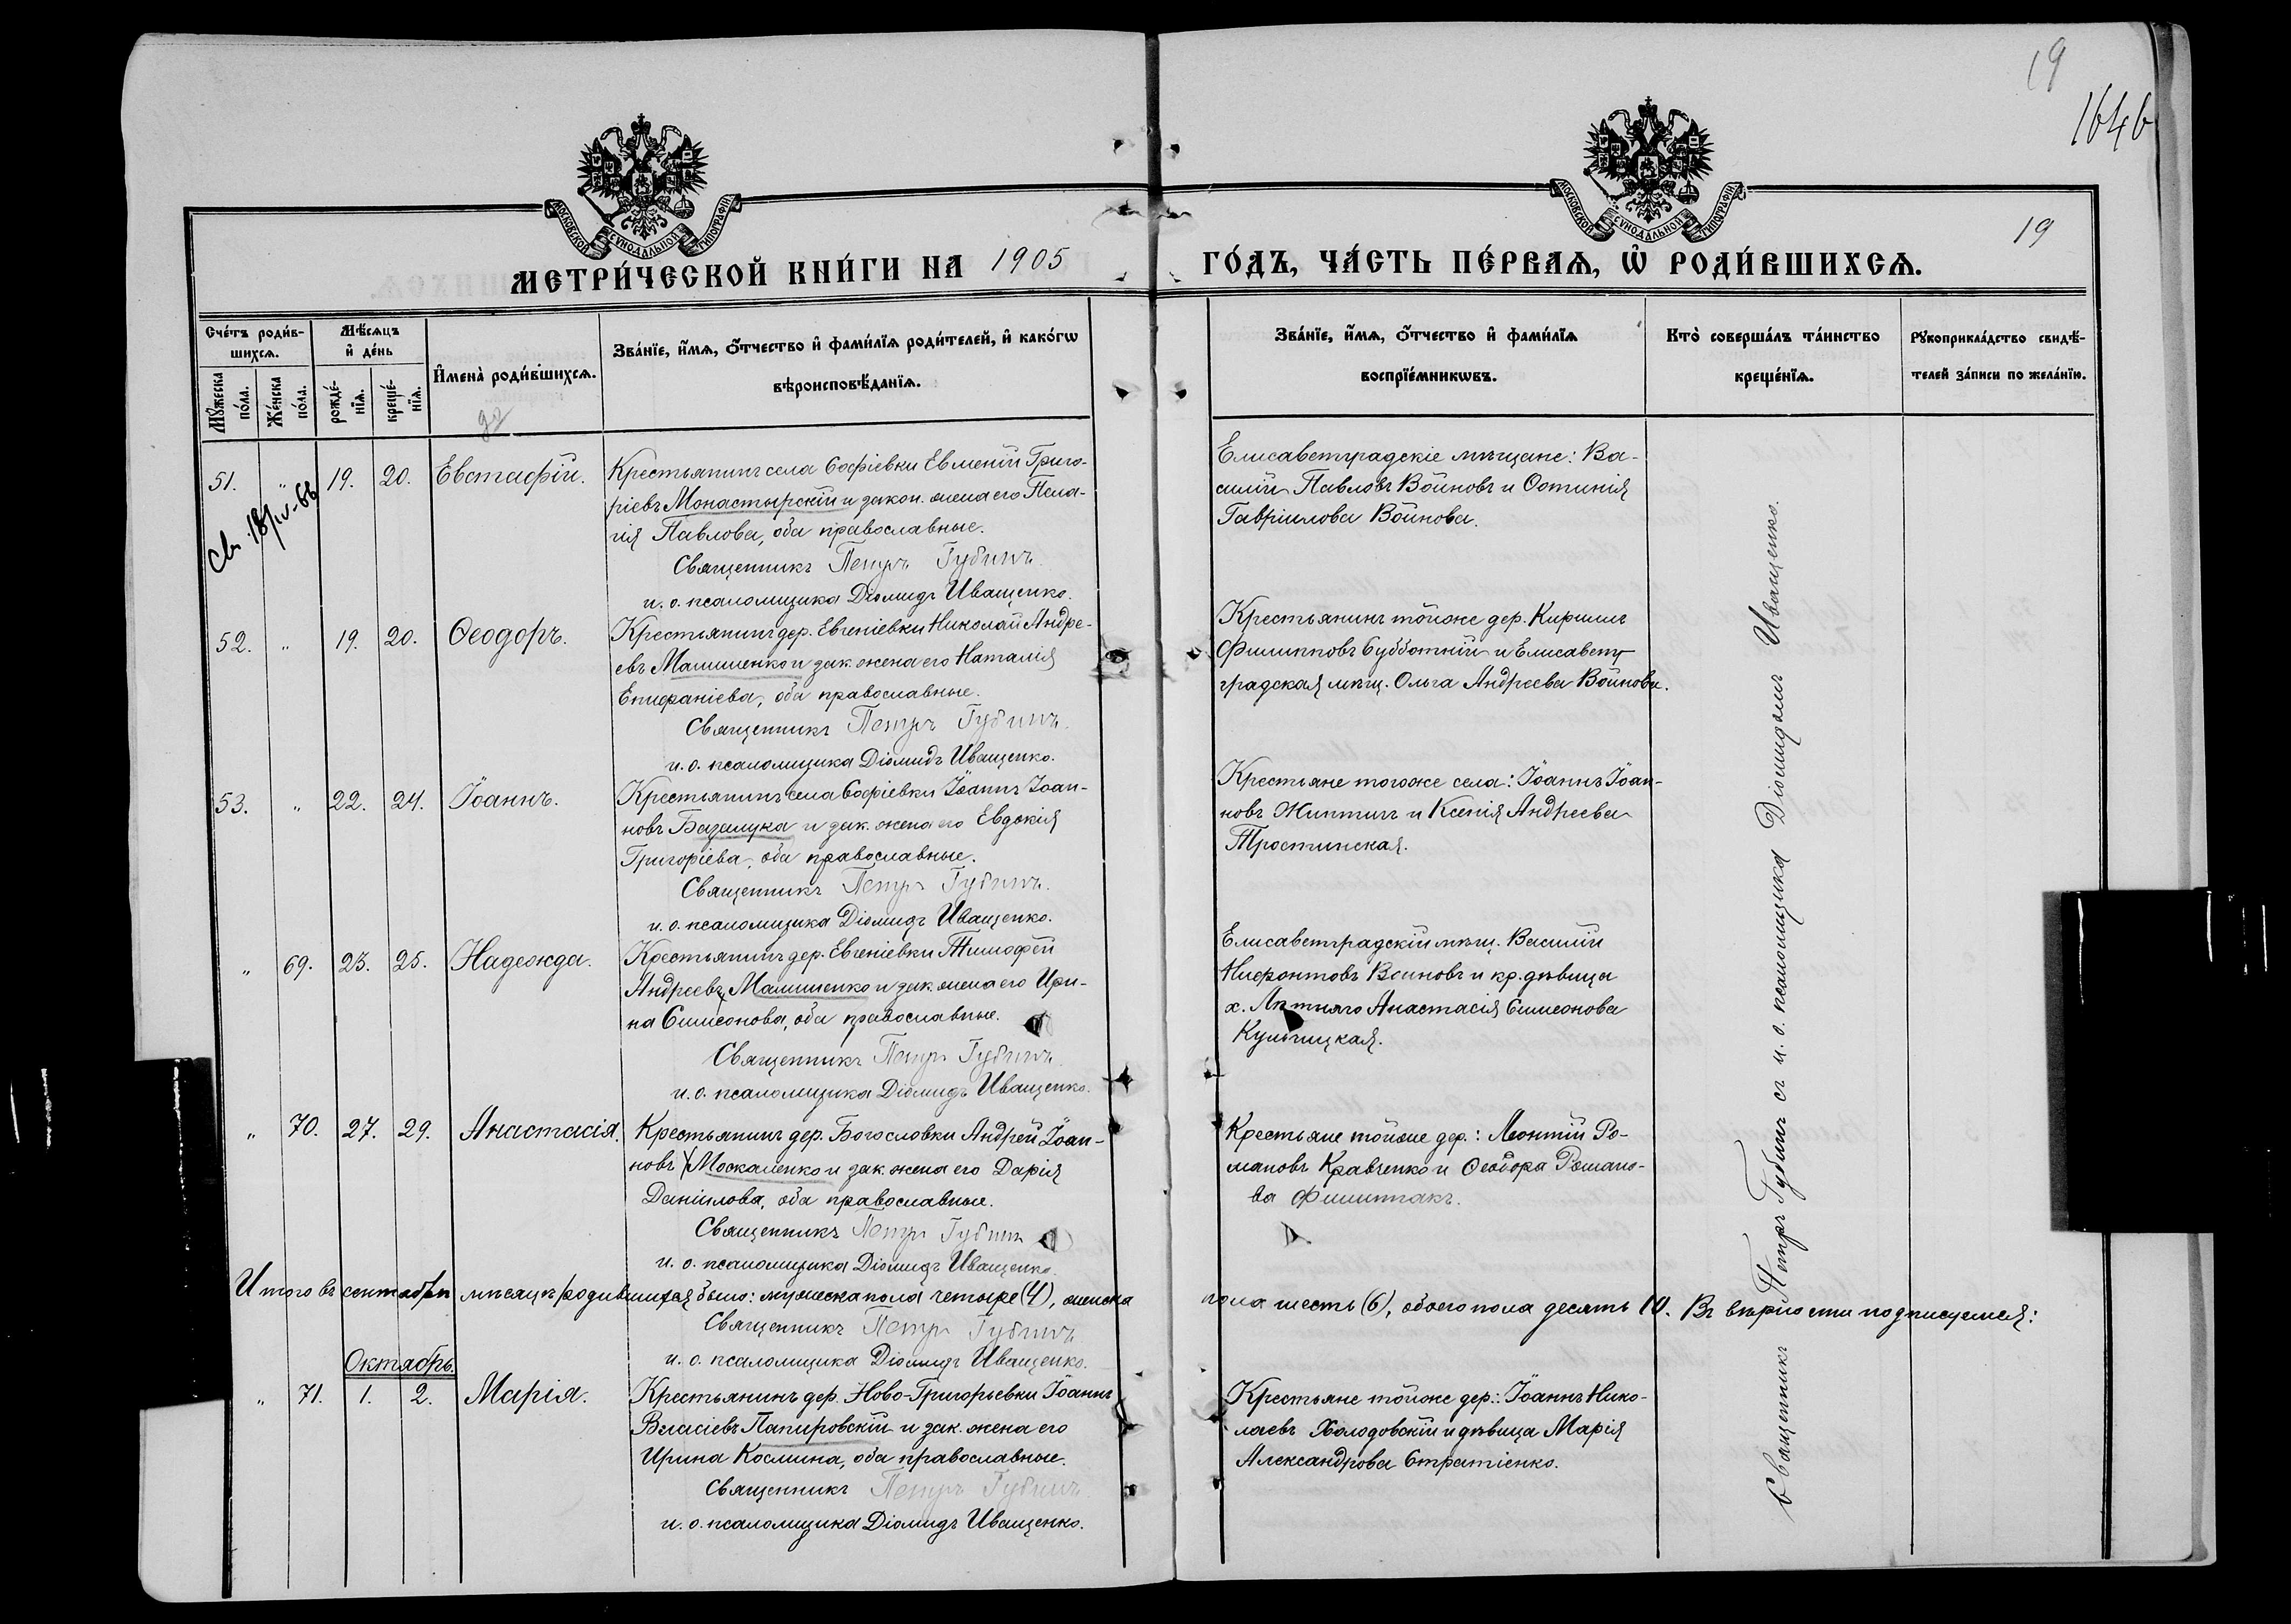 19
1646
19
МОСКОВСКОЙ СѴНОДАЛЬНОЙ ТИПОГРАФІИ
МОСКОВСКОЙ СѴНОДАЛЬНОЙ ТИПОГРАФІИ
МЕТРИ́ЧЕСКОЙ КНИ́ГИ НА 1905 ГО́ДЪ, ЧА́СТЬ ПЕ́РВАѦ, Ѡ҆ РОДИ́ВШИХСѦ.
Сче́тъ роди́в-
шихсѧ.
Мꙋ́жеска
по́ла.
Же́нска
по́ла.
Мѣ́сѧцъ
и҆ де́нь
рожде́-
нїѧ.
креще́-
нїѧ.
И҆мена̀ роди́вшихсѧ.
Зва́нїе, и҆́мѧ, ѻ҆́тчество и҆ фами́лїѧ роди́телей, и҆ како́гѡ
вѣроисповѣ́данїѧ.
Зва́нїе, и҆́мѧ, ѻ҆́тчество и҆ фами́лїѧ
воспрїе́мникѡвъ.
Кто̀ соверша́лъ та́инство
креще́нїѧ.
Рꙋкоприкла́дство свидѣ́-
телей за́писи по жела́нїю.
51. " 19. 20. Евстафій.
Св. 18/IV-66
Крестьянинъ села Софіевки Евменій Григо-
ріевъ Монастырскій и закон. жена его Пела-
гія Павлова, оба православные.
Священникъ Петръ Губинъ
и. о. псаломщика Діомидъ Иващенко.
Елисаветградскіе мѣщане: Ва-
силій Павловъ Войновъ и Фотинія
Гавріилова Войнова.
52. " 19. 20. Ѳеодоръ.
Крестьянинъ дер. Евгеніевки Николай Андре-
евъ Малишенко и зак. жена его Наталія
Епифаніева, оба православные.
Священникъ Петръ Губинъ.
и. о. псаломщика Діомидъ Иващенко.
Крестьянинъ тойже дер. Кириллъ
Филипповъ Субботній и Елисавет-
градская мѣщ. Ольга Андреева Войнова.
53. " 22. 24. Іоаннъ.
Крестьянинъ села Софіевки Іоаннъ Іоан-
новъ Базалука и зак. жена его Евдокія
Григоріева, оба православные.
Священникъ Петръ Губинъ.
и. о. псаломщика Діомидъ Иващенко.
Крестьяне тогоже села: Іоаннъ Іоан-
новъ и Ксенія Андреева
Тростинская.
" 69. 23. 25. Надежда.
Крестьянинъ дер. Евгеніевки Тимофей
Андреевъ Малишенко и зак. жена его Ири-
на Симеонова, оба православные.
Священникъ Петръ Губинъ
и. о. псаломщика Діомидъ Иващенко.
Елисаветградскій мѣщ. Василій
Ниѳонтовъ Войновъ и кр. дѣвица
х. Анастасія Симеонова
Кульчицкая.
" 70. 27. 29. Анастасія.
Крестьянинъ дер. Богословки Андрей Іоан-
новъ Москаленко и зак. жена его Дарія
Даніилова, оба православные.
Священникъ Петръ Губинъ
и. о. псаломщика Діомидъ Иващенко.
Крестьяне тойже дер.: Леонтій Ро-
мановъ Кравченко и Ѳеодора Романо-
ва
Итого въ сентябрѣ мѣсяцѣ родившихся было: мужеска пола четыре (4), женска пола шесть (6), обоего пола десять 10. Въ вѣрности подписуемся:
Священникъ Петръ Губинъ
и. о. псаломщика Діомидъ Иващенко.
Октябрь.
" 71. 1. 2. Марія.
Крестьянинъ дер. Ново-Григорьевки Іоаннъ
Власіевъ Папировскій и зак. жена его
Ирина Космина, оба православные.
Священникъ Петръ Губинъ
и. о. псаломщика Діомидъ Иващенко.
Крестьяне тойже дер.: Іоаннъ Нико-
лаевъ Холодовскій и дѣвица Марія
Александрова Стратіенко.
Священникъ Петръ Губинъ съ и. о. псаломщика Діомидомъ Иващенко.